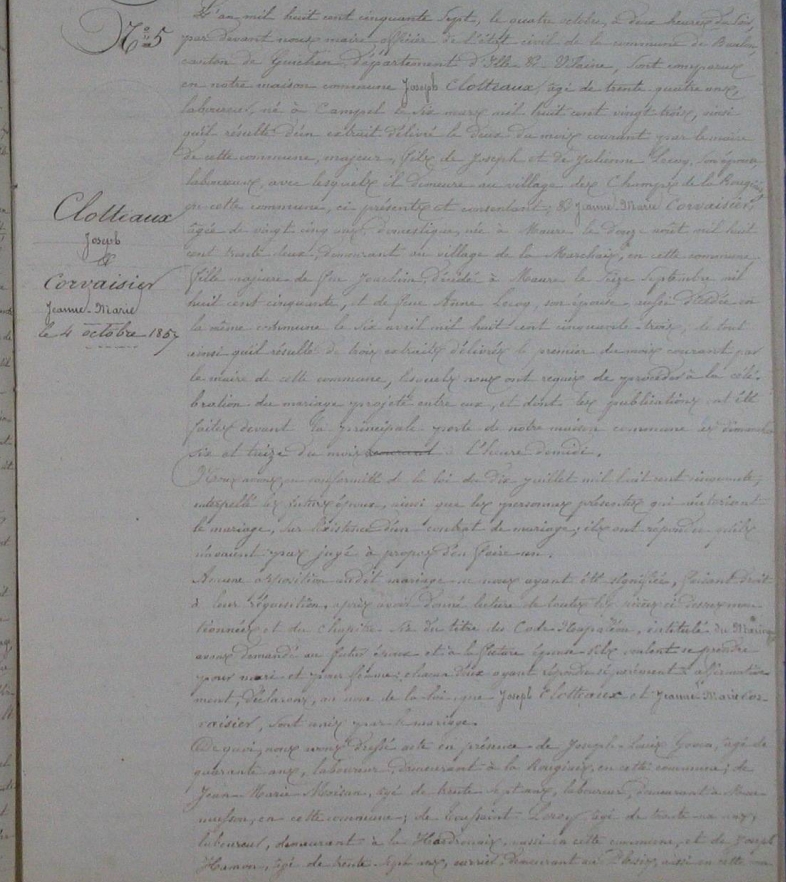 N° 5
Clolteaux
Joseph
&
Corvaisier
Jeanne-Marie
le 4 octobre 1857
L'an mil huit cent cinquante sept, le quatre octobre, à deux heures du soir
par devant nous maire officier de l'état civil de la commune de
canton de Guichen, département d'Ille & Vilaine, sont comparus
en notre maison commune Joseph Clolteaux, âgé de trente quatre ans,
laboureur, né à Campel le six mars mil huit cent vingt trois, ainsi
qu'il résulte d'un extrait délivré le deux du mois courant par le maire
de cette commune, majeur, fils de Joseph et de Julienne son épouse
laboureux, avec lesquels il demeure au village des Champs de la
en cette commune, ci présents et consentant; & Jeanne Marie Corvaisier,
âgée de vingt cinq ans domestique, née à Maure le août mil huit
cent trente deux, demeurant au village de la en cette commune
fille majeure de feu Joachim, décédé à Maure le seize septembre mil
huit cent cinquante, et de feue Anne Leroy, son épouse aussi décédée en
la même commune le six avril mil huit cent cinquante-trois; le tout
ainsi qu'il résulte de trois extraits délivrés le premier du mois courant par
le maire de cette commune, lesquels nous ont requis de procéder à la célé-
bration du mariage projeté entre eux, et dont les publications ont été
faites devant la principale porte de notre maison commune les dimanches
six et treize du mois courant à l'heure de midi.
Nous avons, en conformité de la loi du dix juillet mil huit cent cinquante,
interpellé les futurs époux, ainsi que les personnes présentes qui autorisent
le mariage, sur l'existence d'un contrat de mariage; ils ont répondu qu'ils
n'avaient pas jugé à propos d'en faire un.
Aucune opposition audit mariage ne nous ayant été signifiée, faisant droit
à leur réquisition, après avoir donné lecture de toutes les pièces ci dessus men-
tionnées et du chapitre six du titre du Code Napoléon, intitulé du Mariage
avons demandé au futur époux et à la future épouse s'ils veulent se prendre
pour mari et pour femme; chacun d'eux ayant répondu séparément & affirmative-
ment, déclarons, au nom de la loi, que Joseph Clolteaux et Jeanne Marie Cor-
vaisier, sont unis par le mariage.
De quoi, nous avons dressé acte en présence de Joseph Louis âgé de
quarante ans, laboureur, demeurant à la en cette commune; de
Jean-Marie Moisan, âgé de trente sept ans, laboureur, demeurant à
en cette commune; de Toussaint Leroy âgé de trente ans,
laboureur, demeurant à la Hardronais, aussi en cette commune, et de Joseph
Hamon, âgé de trente sept ans, demeurant au Plessix, aussi en cette